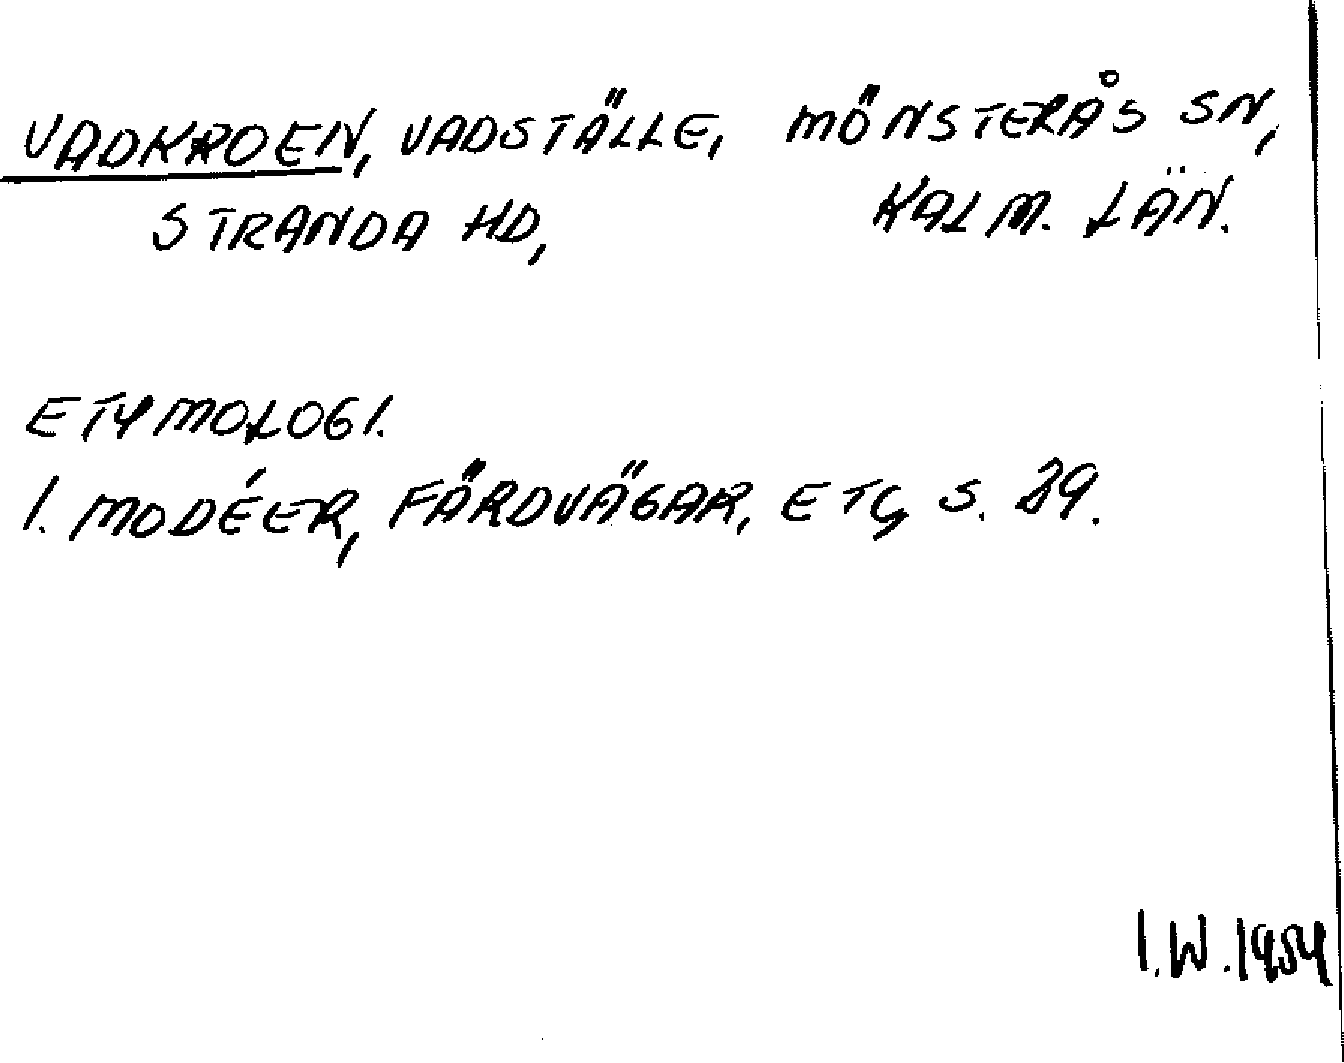 VADKROEN, VADSTÄLLE, MÖNSTERÅS SN,
STRANDA HD, KALM. LÄN.
ETYMOLOGI.
I. MODÉER, FÄRDVÄGAR, ETC, S. 29.
I.W. 1954